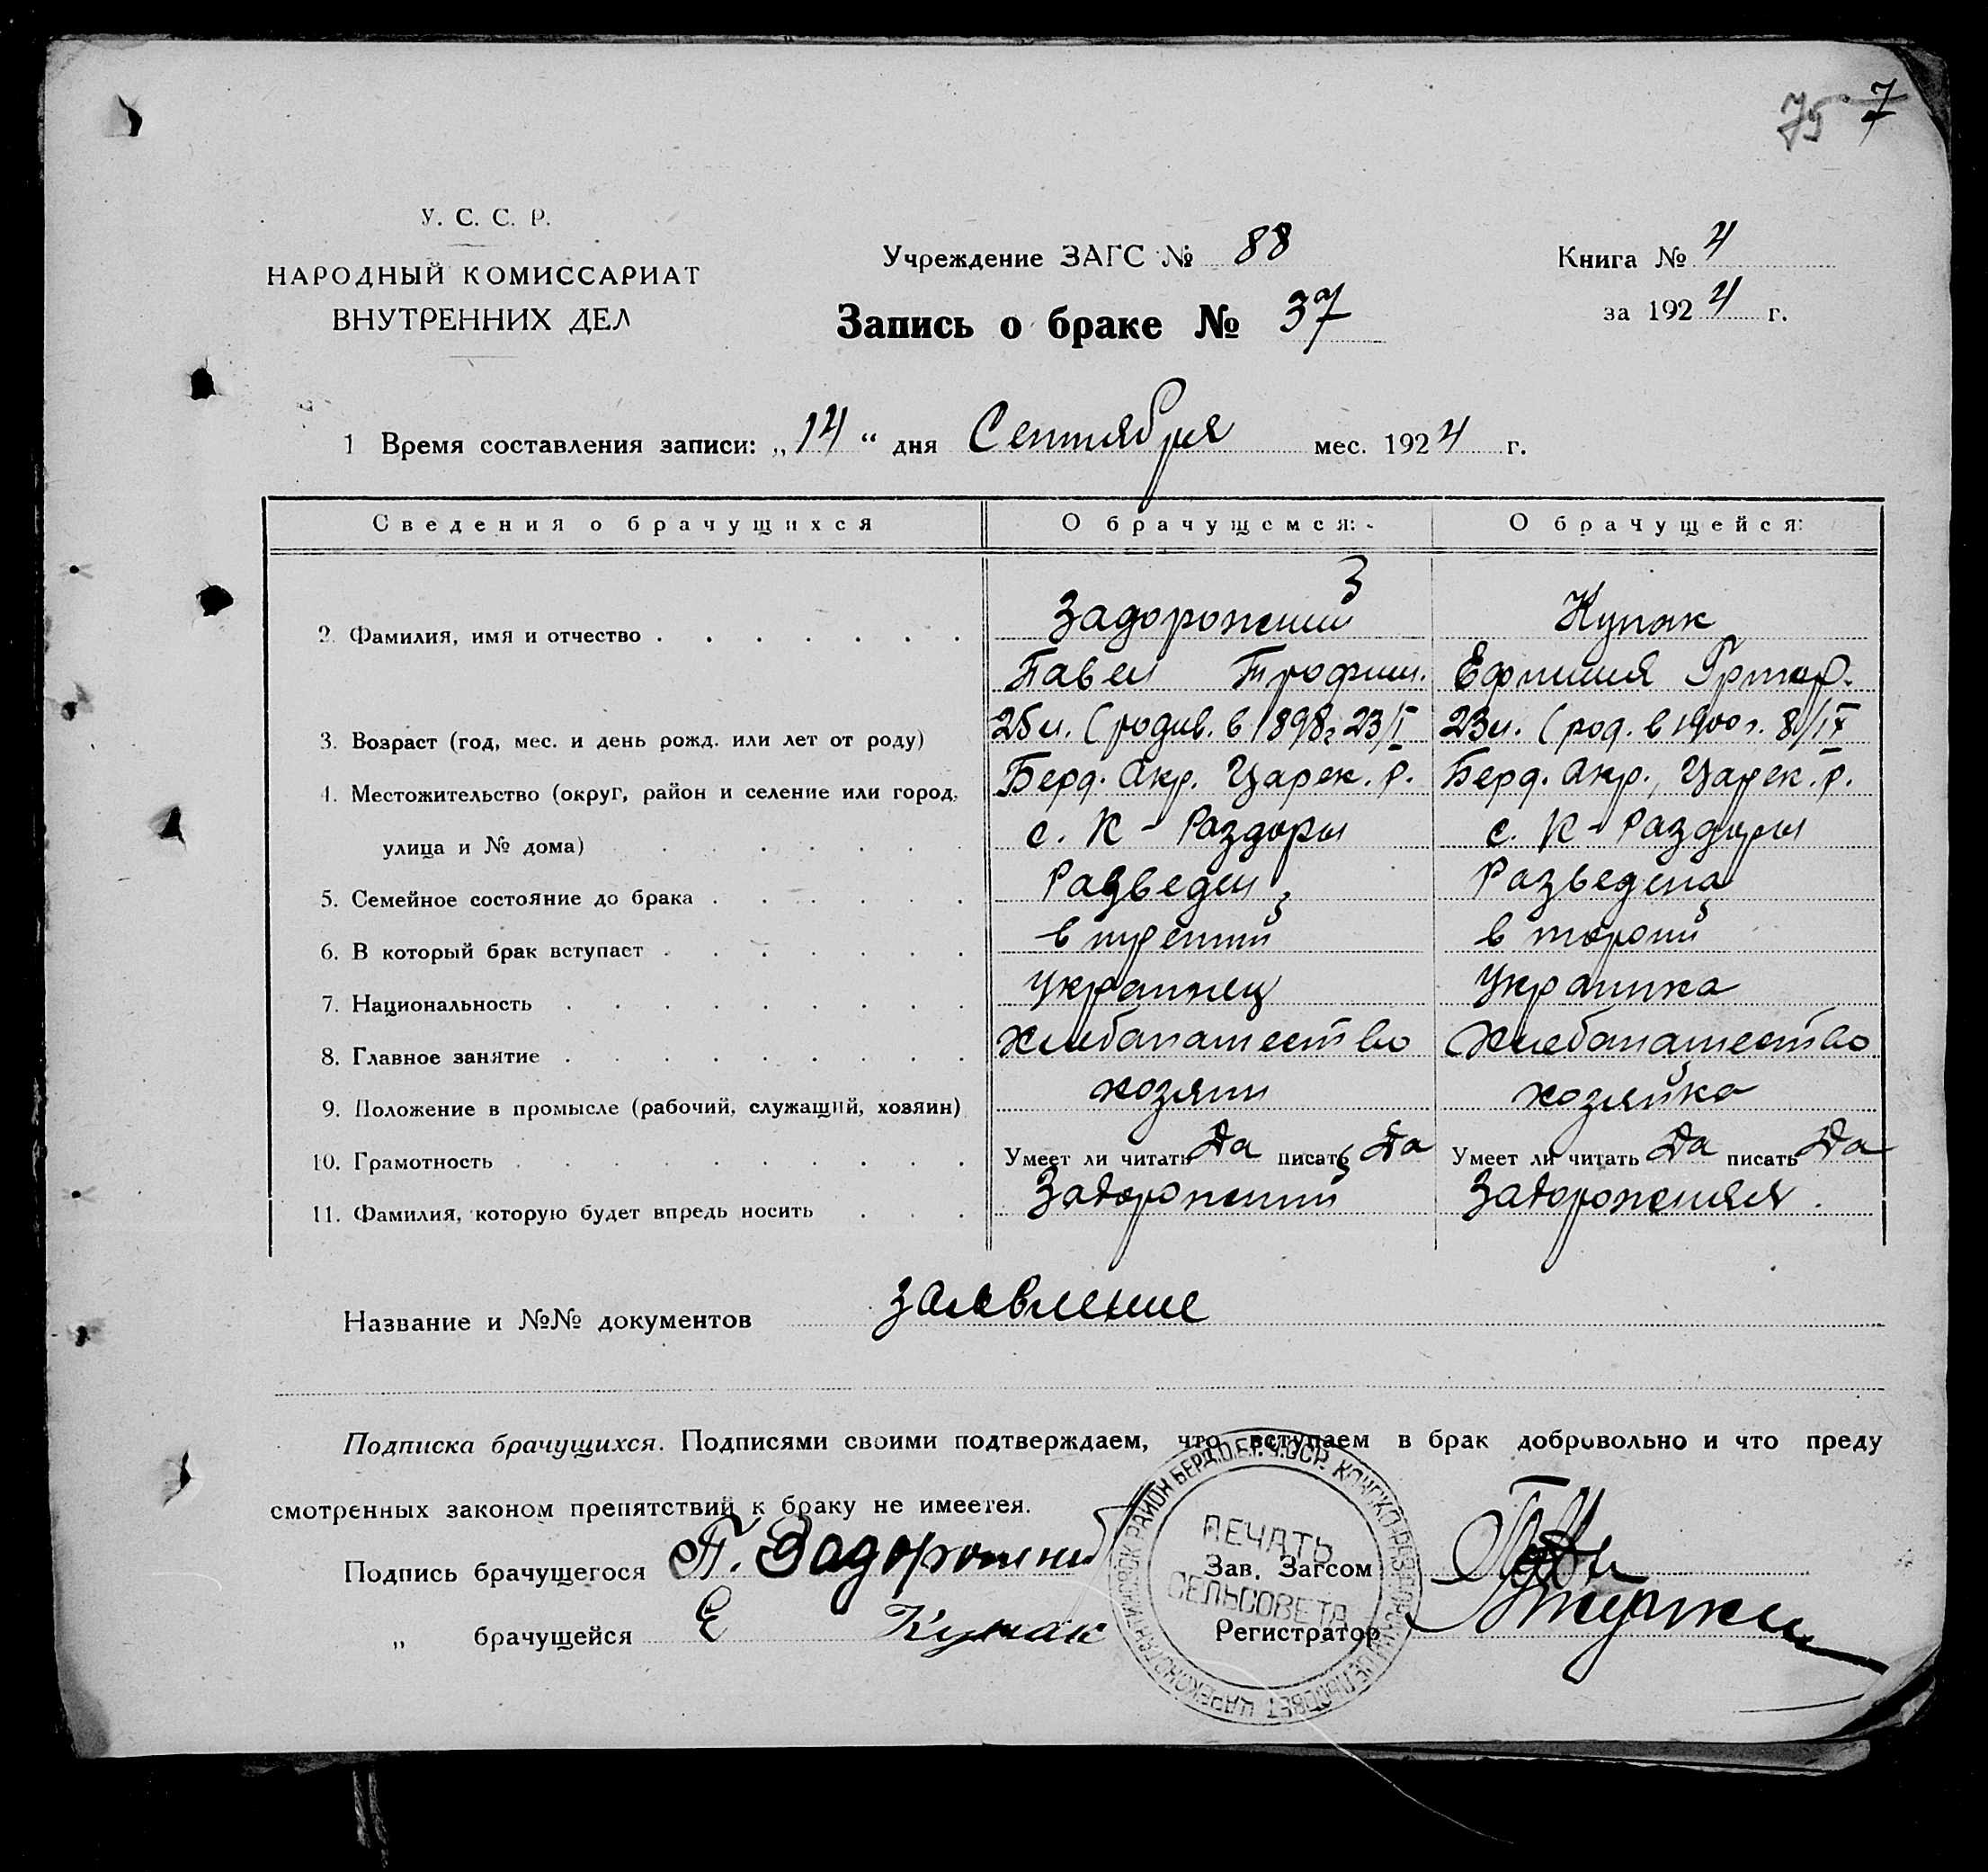 75 7
У. С. С. Р.
НАРОДНЫЙ КОМИССАРИАТ
ВНУТРЕННИХ ДЕЛ
Учреждение ЗАГС № 88
Книга № 4
Запись о браке № 37
за 1924 г.
1 Время составления записи: „14“ дня Сентября мес. 1924 г.
Сведения о брачущихся О брачущемся: О брачущейся:
2. Фамилия, имя и отчество Задорожний Купак
Павел Трофим. Ефимия Григор.
3. Возраст (год, мес. и день рожд. или лет от роду) 25 л. (родив. в 1898 г. 23/I 23 л. (род. в 1900 г. 8/IX
4. Местожительство (округ, район и селение или город, Берд. Окр. Царек. р. Берд. Окр., Царек. р.
улица и № дома) с. К-Раздоры с. К-Раздоры
5. Семейное состояние до брака Разведен Разведена
6. В который брак вступает в третий в торой
7. Национальность украинец украинка
8. Главное занятие Хлебопашество Хлебопашество
9. Положение в промысле (рабочий, служащий, хозяин) хозяин хозяйка
10. Грамотность Умеет ли читать Да писать Да Умеет ли читать Да писать Да
11. Фамилия, которую будет впредь носить Задорожний Задорожняя.
Название и №№ документов заявление
Подписка брачущихся. Подписями своими подтверждаем, что вступаем в брак добровольно и что преду
смотренных законом препятствий к браку не имеется.
Подпись брачущегося П. Задорожний Зав. Загсом
„ брачущейся Е Купак Регистратор
ПЕЧАТЬ
СЕЛЬСОВЕТА